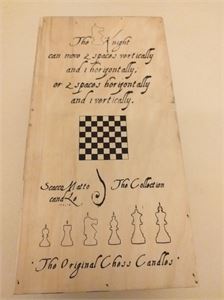 The Knight
can move 2 spaces vertically
and 1 horizontally,
or 2 spaces horizontally
and 1 vertically.
Scacco Matto The Collection
candle
"The Original Chess Candles"